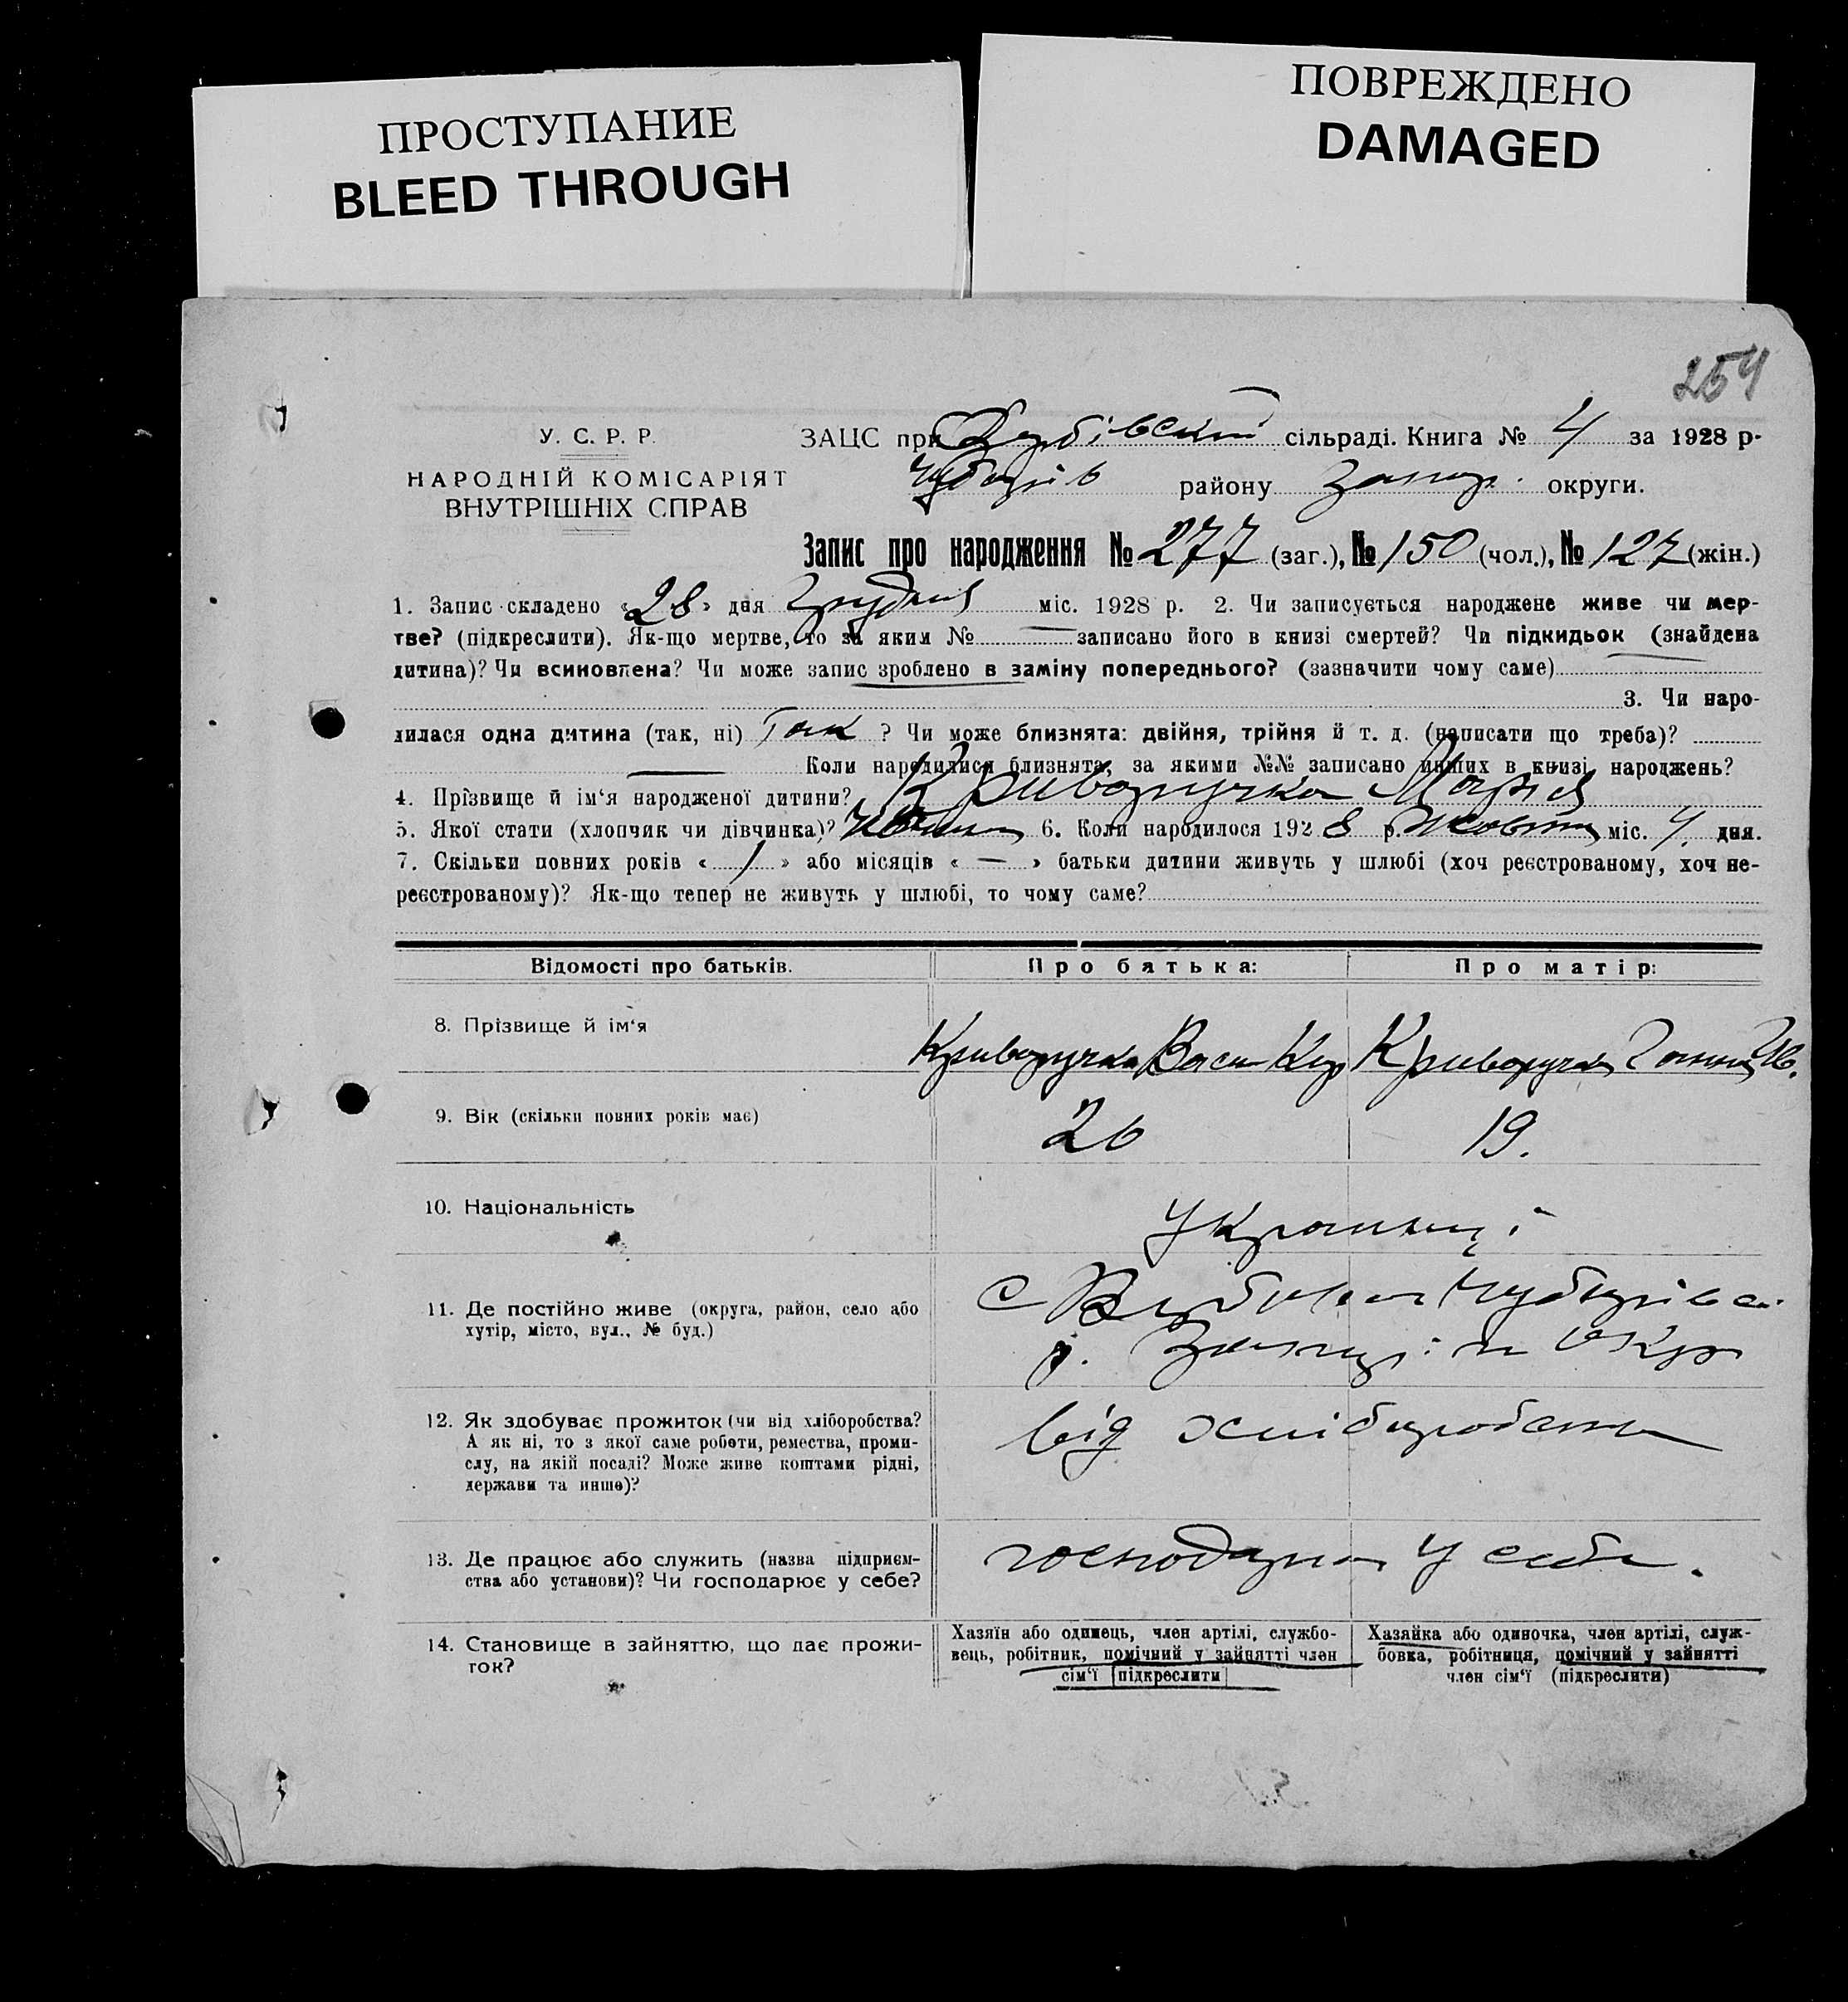 ПРОСТУПАНИЕ
BLEED THROUGH
ПОВРЕЖДЕНО
DAMAGED
254
У. С. Р. Р.
НАРОДНІЙ КОМІСАРІЯТ
ВНУТРІШНІХ СПРАВ
ЗАЦС при сільраді. Книга № 4 за 1928 р.
району округи.
Запис про народження № 277 (заг.), № 150 (чол.), № 127 (жін.)
1. Запис складено «28» дня Грудня міс. 1928 р. 2. Чи записується народжене живе чи мер-
тве? (підкреслити). Як-що мертве, то за яким № записано його в книзі смертей? Чи підкидьок (знайдена
дитина)? Чи всиновлена? Чи може запис зроблено в заміну попереднього? (зазначити чому саме)
3. Чи наро-
дилася одна дитина (так, ні) Так ? Чи може близнята: двійня, трійня й т. д. (написати що треба)?
Коли народилися близнята, за якими №№ записано инших в книзі народжень?
4. Прізвище й ім‘я народженої дитини? Криворучко Марія
5. Якої стати (хлопчик чи дівчинка)? 6. Коли народилося 1928 р. Жовтня міс. 4. дня.
7. Скільки повних років « 1 » або місяців « — » батьки дитини живуть у шлюбі (хоч реєстрованому, хоч не-
реєстрованому)? Як-що тепер не живуть у шлюбі, то чому саме?
Відомості про батьків. Про батька: Про матір:
8. Прізвище й ім‘я Криворучко Васи Криворучко Ганна Ів.
9. Вік (скільки повних років має) 26 19.
10. Національність Українці
11. Де постійно живе (округа, район, село або
хутір, місто, вул., № буд.)
с
р. окр
12. Як здобуває прожиток (чи від хліборобства?
А як ні, то з якої саме роботи, ремества, проми-
слу, на якій посаді? Може живе коштами рідні,
держави та инше)?
від хліборобства
13. Де працює або служить (назва підприєм-
ства або установи)? Чи господарює у себе?
господарює у себе.
14. Становище в зайняттю, що дає прожи-
ток?
Хазяїн або одинець, член артілі, службо-
вець, робітник, помічний у зайнятті член
сім‘ї (підкреслити)
Хазяйка або одиночка, член артілі, служ-
бовка, робітниця, помічний у зайнятті
член сім‘ї (підкреслити)